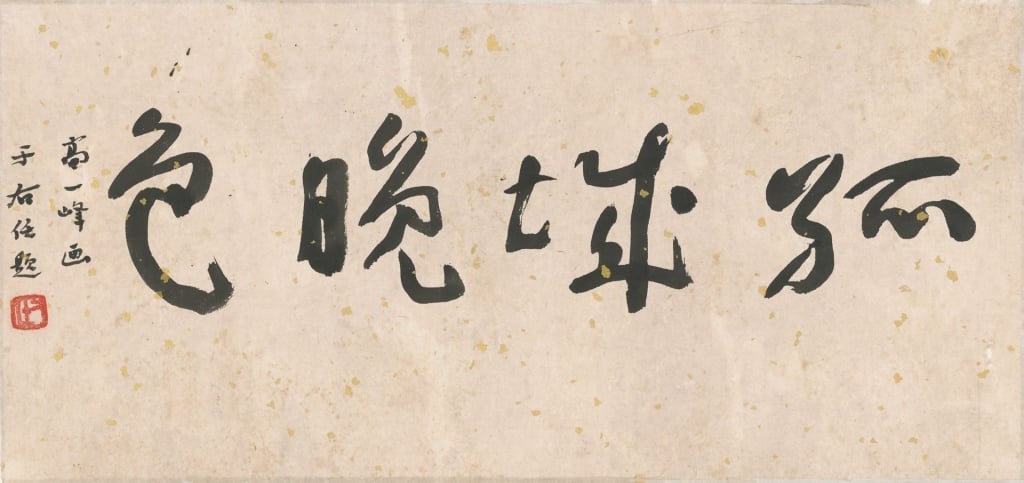 孤城晚色
高一峰画
于右任題